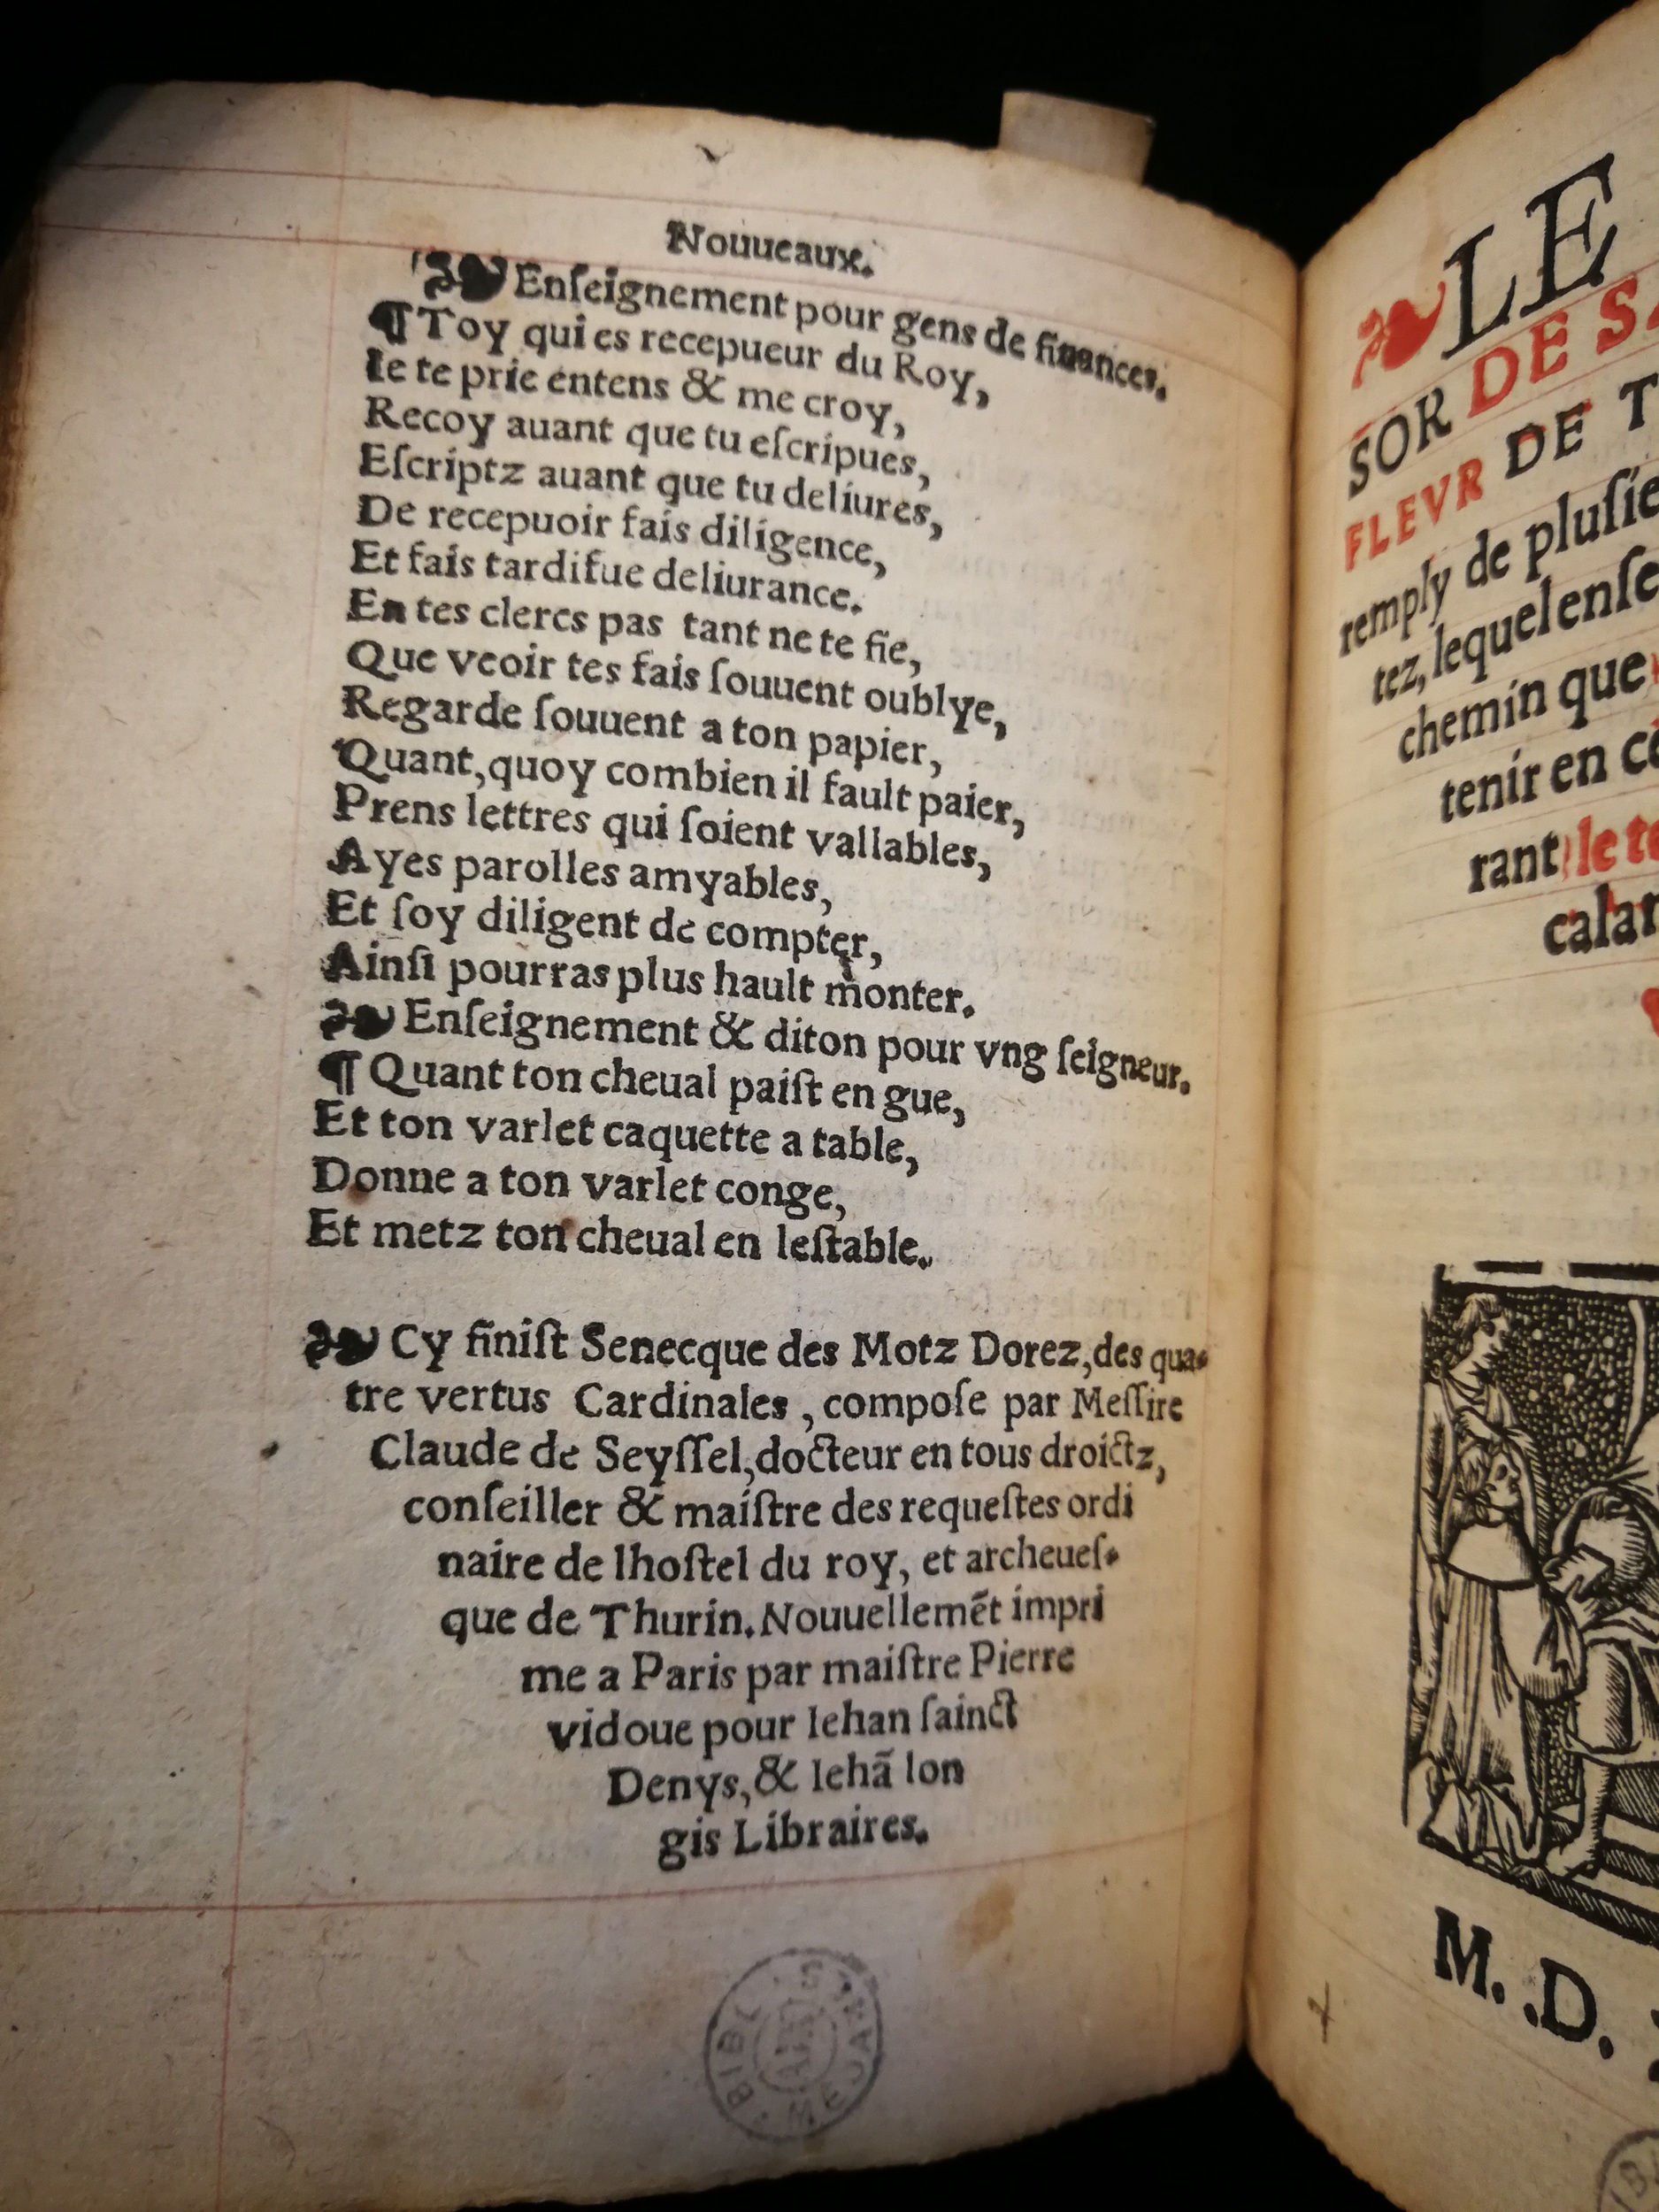 Nouueaux.
❧ Enſeignement pour gens de finances.
¶ Toy qui es recepueur du Roy,
Ie te prie entens & me croy,
Recoy auant que tu eſcripues,
Eſcriptz auant que tu deliures,
De recepuoir fais diligence,
Et fais tardifue deliurance.
En tes clercs pas tant ne te fie,
Que veoir tes fais ſouuent oublye,
Regarde ſouuent a ton papier,
Quant, quoy combien il fault paier,
Prens lettres qui ſoient vallables,
Ayes parolles amyables,
Et ſoy diligent de compter,
Ainſi pourras plus hault monter.
❧ Enſeignement & diton pour vng ſeigneur.
¶ Quant ton cheual paiſt en gue,
Et ton varlet caquette a table,
Donne a ton varlet conge,
Et metz ton cheual en leſtable.
❧ Cy finiſt Senecque des Motz Dorez, des qua-
tre vertus Cardinales, compoſe par Meſſire
Claude de Seyſſel, docteur en tous droictz,
conſeiller & maiſtre des requeſtes ordi
naire de lhoſtel du roy, et archeueſ-
que de Thurin. Nouuellemēt impri
me a Paris par maiſtre Pierre
vidoue pour Iehan ſainct
Denys, & Iehā lon
gis Libraires.
BIBL. MEJANES
❧ LE
SOR DE S
FLEVR DE T
remply de pluſie
tez, lequel enſe
chemin que
tenir en
rant le te
calam
M. D.